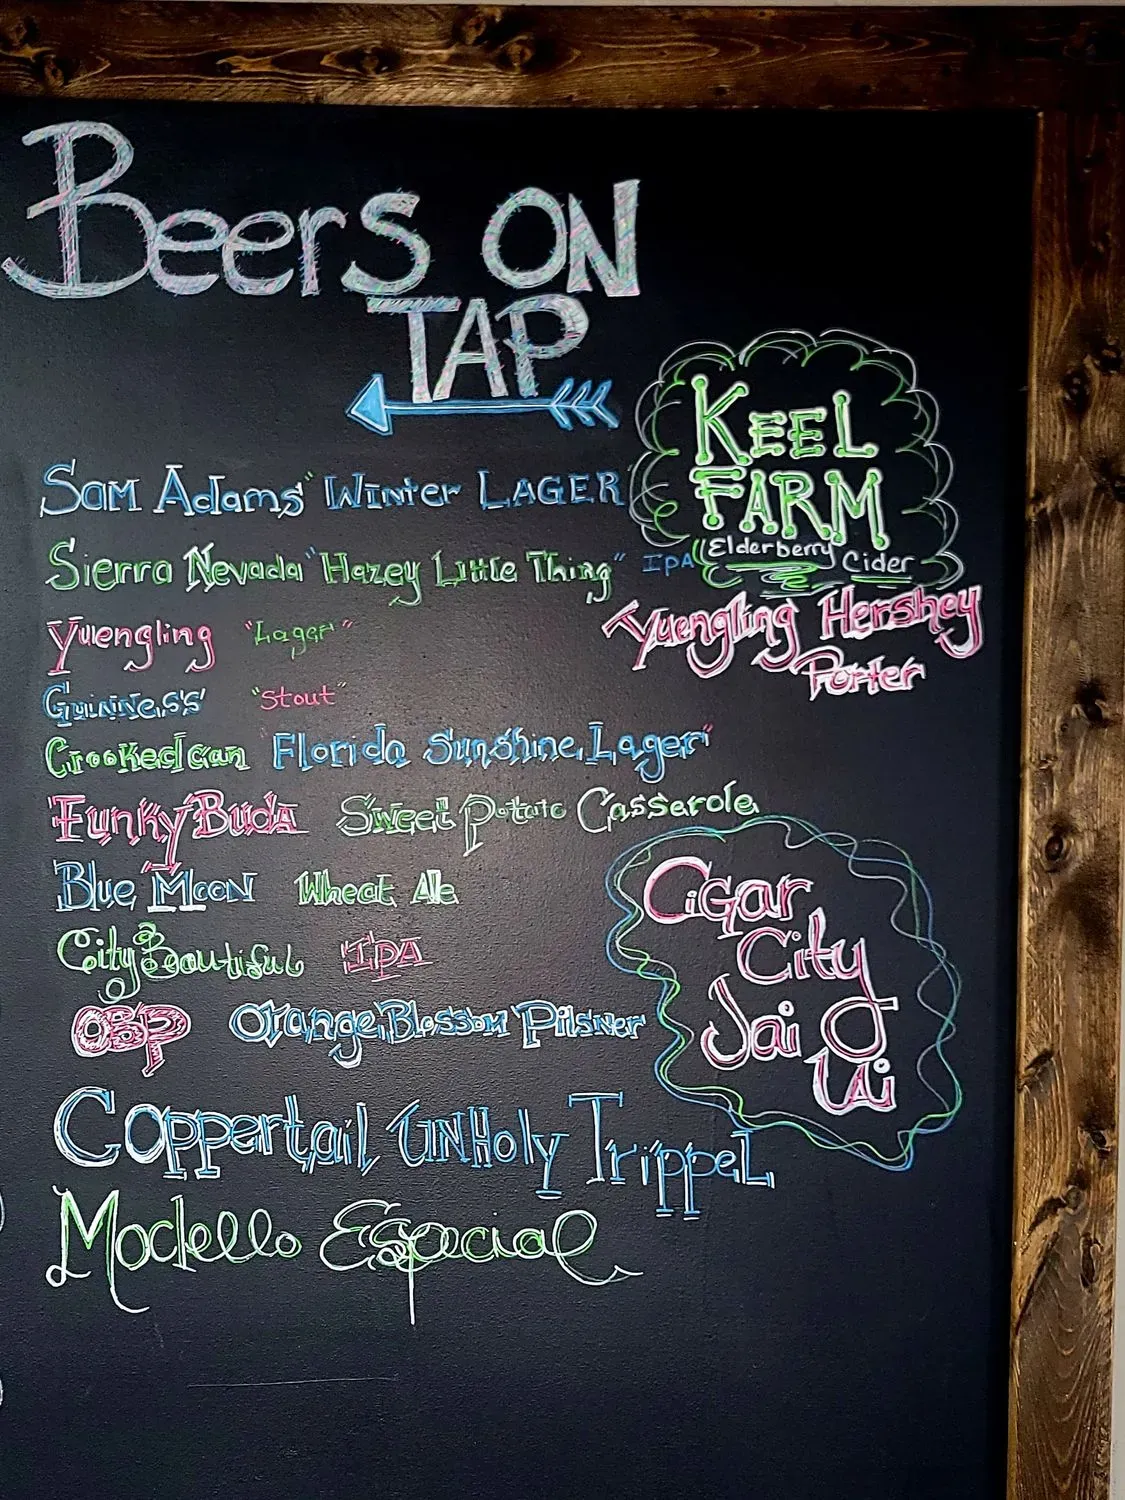 Beers ON
TAP
KEEL
FARM
Elderberry Cider
Sam Adams "Winter LAGER"
Sierra Nevada "Hazey Little Thing" IPA
Yuengling "Lager"
Yuengling Hershey
Porter
Guinness "Stout"
Crooked Can "Florida Sunshine Lager"
Funky Buda Sweet Potato Casserole
Blue Moon Wheat Ale
City Beautiful IPA
OBP Orange Blossom Pilsner
Cigar
City
Jai
Lai
Coppertail UNHoly TrippeL
Modello Especial